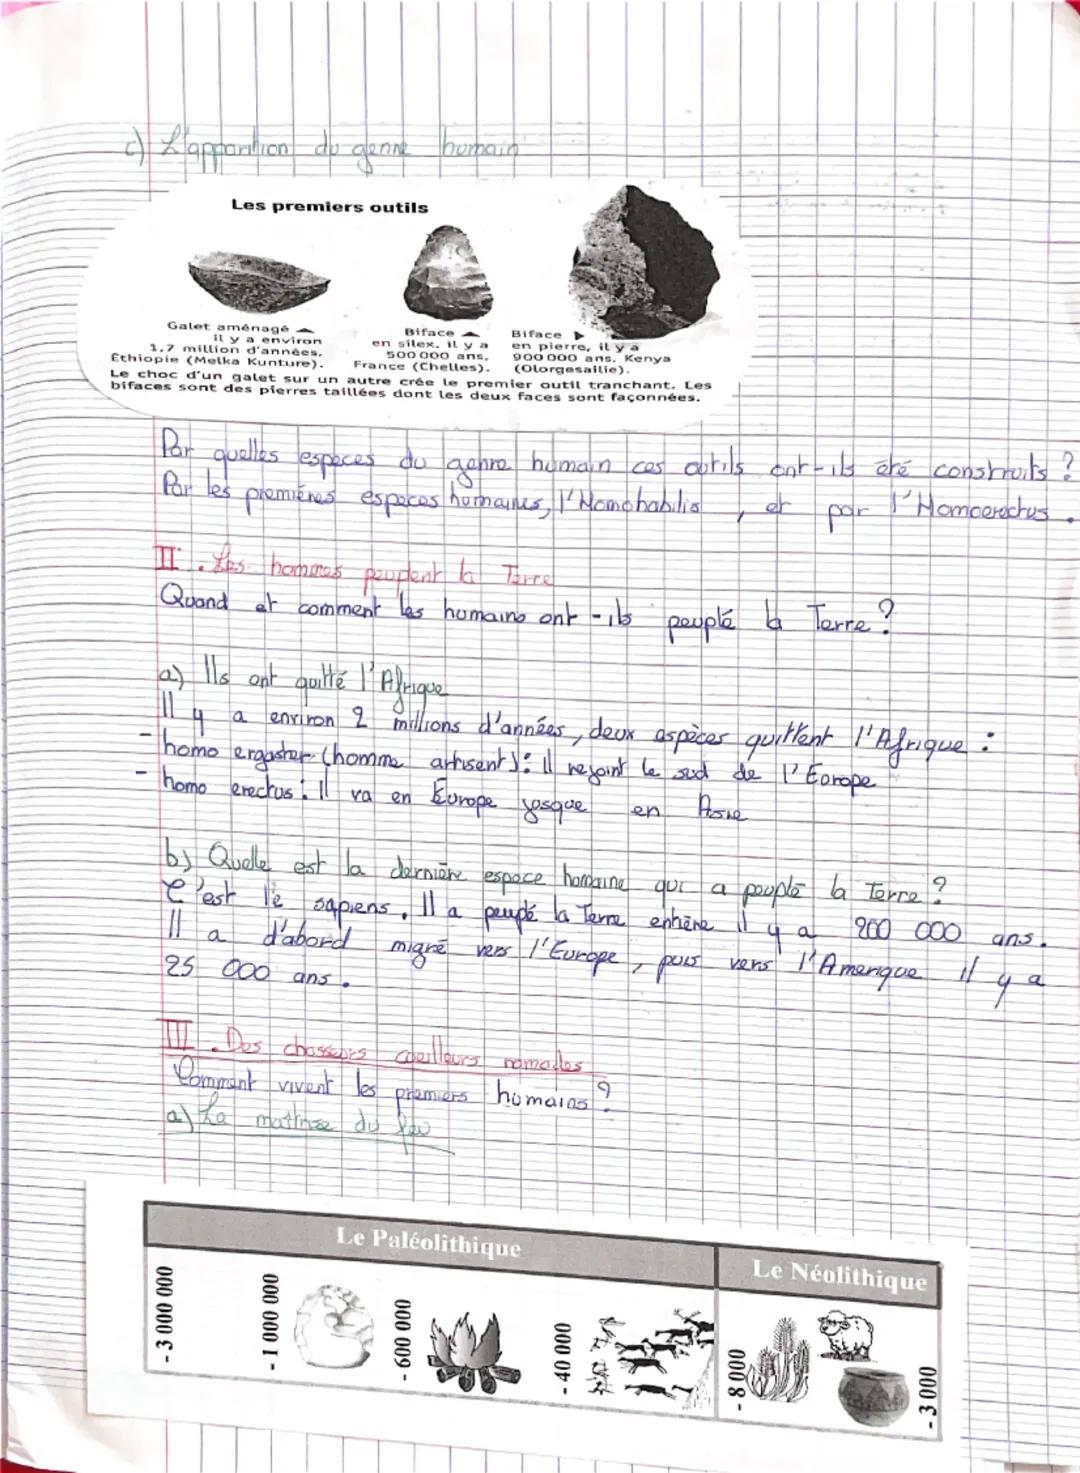 c) L'apparition du genre humain
Les premiers outils
Galet aménagé
il y a environ
1,7 million d'années,
Éthiopie (Melka Kunture).
Biface
en silex, il y a
500 000 ans,
France (Chelles).
Biface
en pierre, il y a
900 000 ans. Kenya
(Olorgesailie).
Le choc d'un galet sur un autre crée le premier outil tranchant. Les
bifaces sont des pierres taillées dont les deux faces sont façonnées.
Par quelles espèces du genre humain ces outils ont-ils été construits ?
Par les premières espèces humaines, l'Homohabilis, et par l'Homoerectus.
II. Les hommes peuplent la Terre
Quand et comment les humains ont-ils peuplé la Terre ?
a) Ils ont quitté l'Afrique
Il y a environ 2 millions d'années, deux espèces quittent l'Afrique :
- homo ergaster (homme artisent) : Il rejoint le sud de l'Europe
- homo erectus : Il va en Europe jusque en Asie
b) Quelle est la dernière espace homaine qui a peuplé la Terre ?
C'est le sapiens. Il a peuplé la Terre enhène il y a 200 000 ans.
Il a d'abord migré vers l'Europe, puis vers l'Amerique il y a
25 000 ans.
III. Des chasseurs cueilleurs nomades
Comment vivent les premiers humains ?
a) La maîtrise du feu
Le Paléolithique
Le Néolithique
- 3 000 000
- 1 000 000
- 600 000
- 40 000
- 8 000
- 3 000